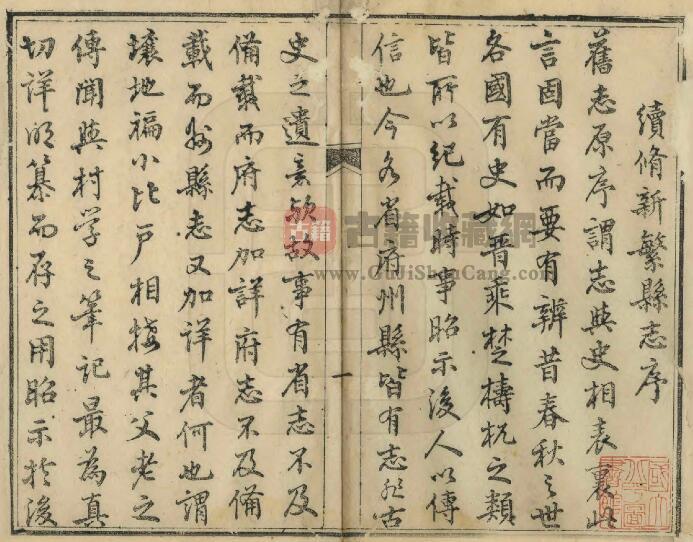 續脩新繁縣志序
舊志原序謂志與史相表裏此
言固當而要有辨昔春秋之世
各國有史如晉乘楚檮杌之類
皆所以紀載時事昭示後人以傳
信也今各省府州縣皆有志然古
史之遺意歟故事有省志不及
備載而府志加詳府志不及備
載而州縣志又加詳者何也謂
壤地褊小比戶相接其父老之
傳聞與村學之筆記最為真
切詳明纂而存之用昭示於後
一
古籍 古籍收藏網
www.GuJiShouCang.com